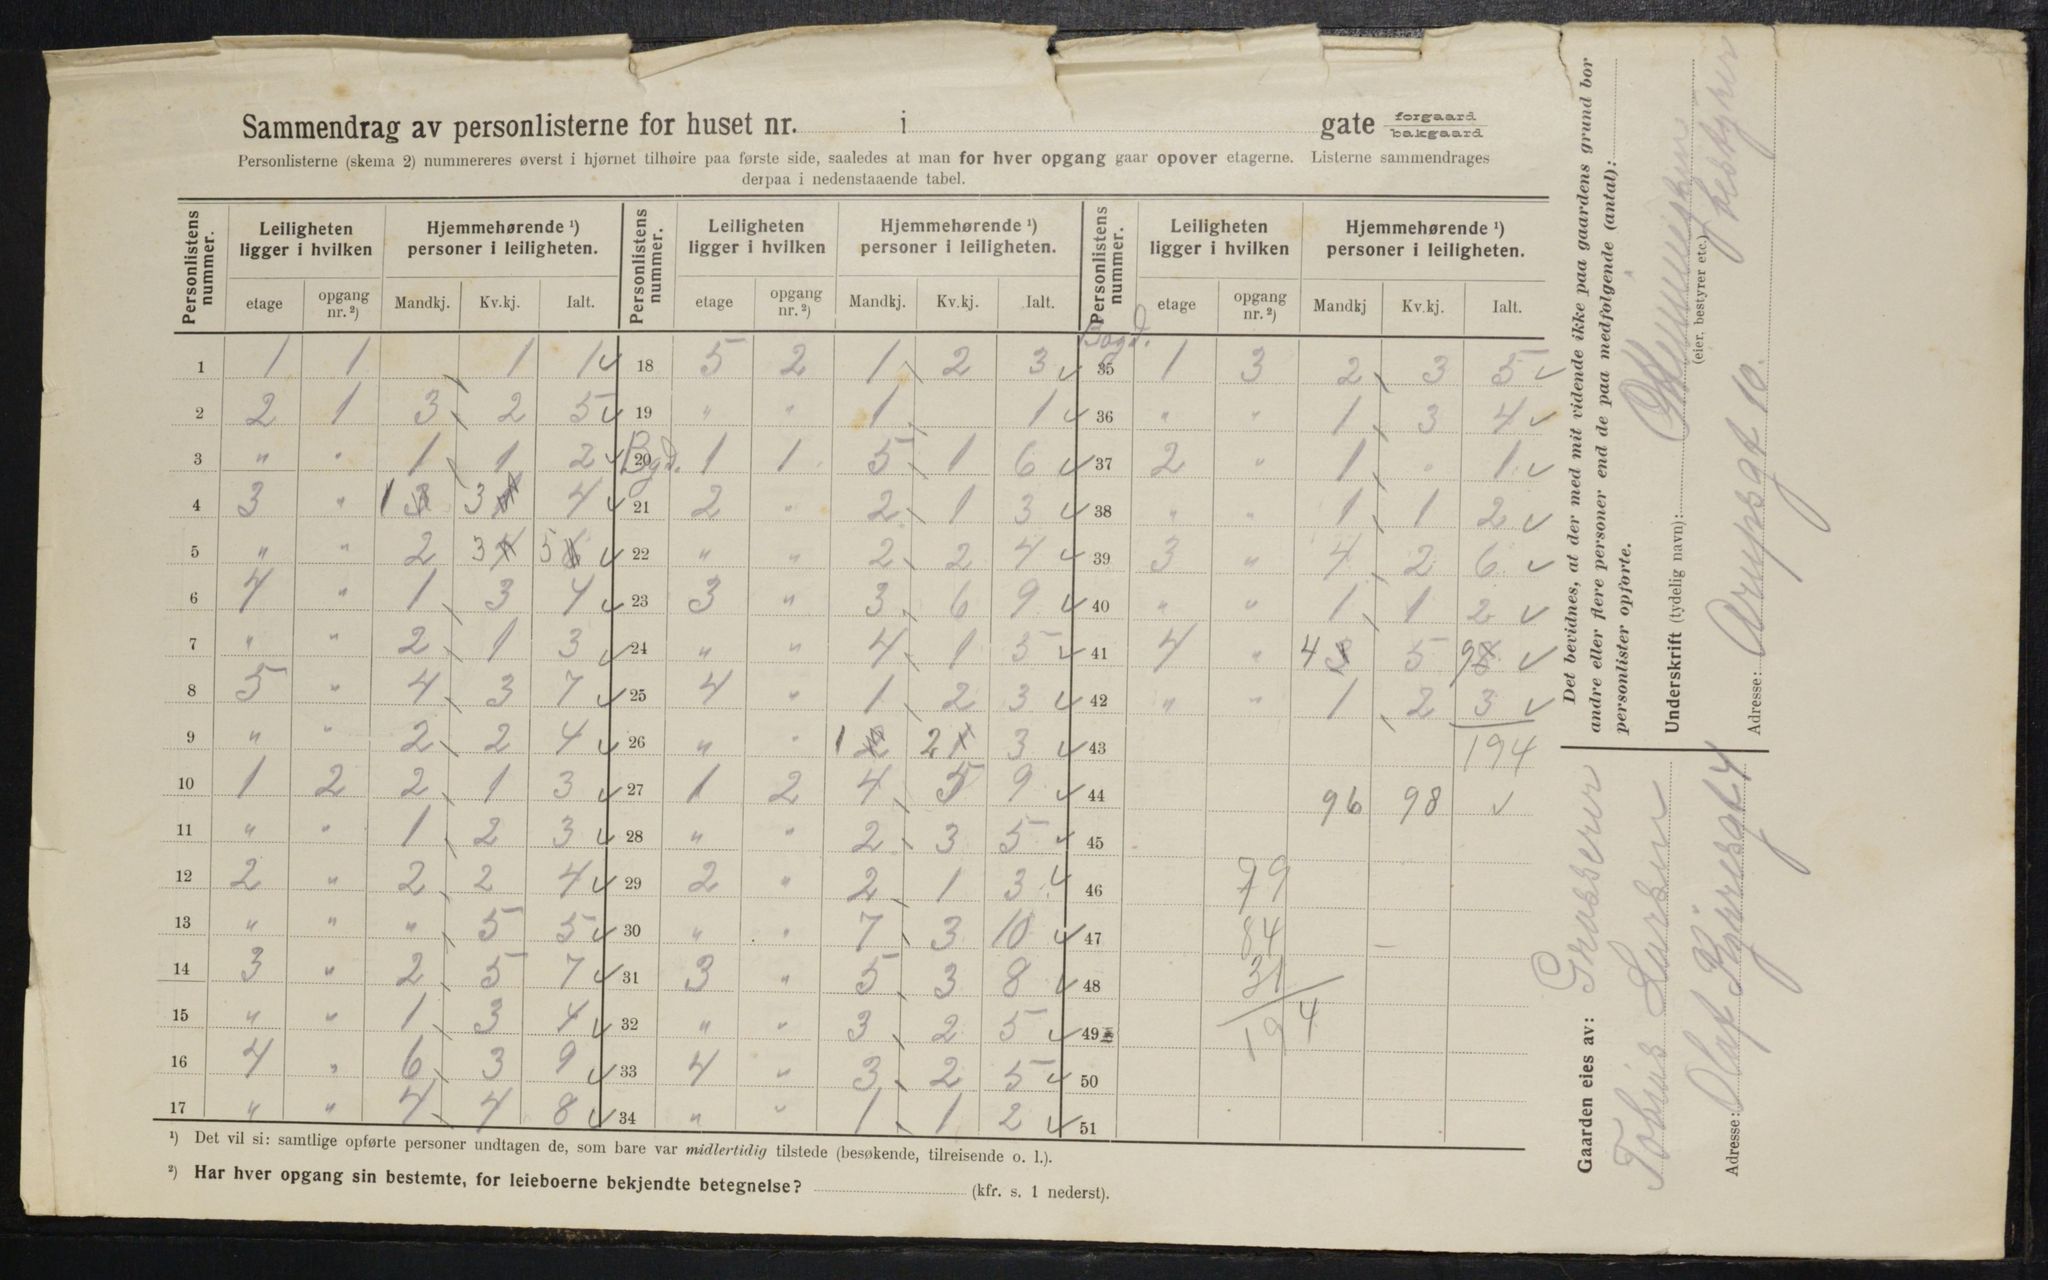 Sammendrag av personlisterne for huset nr. i gate forgaard bakgaard
Personlisterne (skema 2) nummereres øverst i hjørnet tilhøire paa første side, saaledes at man for hver opgang gaar opover etagerne. Listerne sammendrages
derpaa i nedenstaaende tabel.
Personlistens nummer. Leiligheten ligger i hvilken Hjemmehørende ¹) personer i leiligheten. Personlistens nummer. Leiligheten ligger i hvilken Hjemmehørende ¹) personer i leiligheten. Personlistens nummer. Leiligheten ligger i hvilken Hjemmehørende ¹) personer i leiligheten.
etage opgang nr. ²) Mandkj. Kv.kj. Ialt. etage opgang nr. ²) Mandkj. Kv.kj. Ialt. etage opgang nr. ²) Mandkj Kv.kj. Ialt.
1 1 1 1 1 ✓ 18 5 2 1 2 3 ✓ Bagd. 35 1 3 2 3 5 ✓
2 2 1 3 2 5 ✓ 19 " " 1 1 ✓ 36 " " 1 3 4 ✓
3 " " 1 1 2 ✓ Bgd. 20 1 1 5 1 6 ✓ 37 2 " 1 " 1 ✓
4 3 " 1 3 3 1 4 ✓ 21 2 " 2 1 3 ✓ 38 " " 1 1 2 ✓
5 " " 2 3 4 5 6 ✓ 22 " " 2 2 4 ✓ 39 3 " 4 2 6 ✓
6 4 " 1 3 4 ✓ 23 3 " 3 6 9 ✓ 40 " " 1 1 2 ✓
7 " " 2 1 3 ✓ 24 " " 4 1 5 ✓ 41 4 " 4 3 5 9 8 ✓
8 5 " 4 3 7 ✓ 25 4 " 1 2 3 ✓ 42 " " 1 2 3 ✓
9 " " 2 2 4 ✓ 26 " " 1 2 2 1 3 ✓ 43 194
10 1 2 2 1 3 ✓ 27 1 2 4 5 9 ✓ 44 96 98 ✓
11 " " 1 2 3 ✓ 28 " " 2 3 5 ✓ 45
12 2 " 2 2 4 ✓ 29 2 " 2 1 3 ✓ 46 79
13 " " " 5 5 ✓ 30 " " 7 3 10 ✓ 47 84
14 3 " 2 5 7 ✓ 31 3 " 5 3 8 ✓ 48 31
15 " " 1 3 4 ✓ 32 " " 3 2 5 ✓ 49 194
16 4 " 6 3 9 ✓ 33 4 " 3 2 5 ✓ 50
17 " " 4 4 8 ✓ 34 " " 1 1 2 ✓ 51
¹) Det vil si: samtlige opførte personer undtagen de, som bare var midlertidig tilstede (besøkende, tilreisende o. l.).
²) Har hver opgang sin bestemte, for leieboerne bekjendte betegnelse? (kfr. s. 1 nederst).
Det bevidnes, at der med mit vidende ikke paa gaardens grund bor
andre eller flere personer end de paa medfølgende (antal):
personlister opførte.
Underskrift (tydelig navn):
(eier, bestyrer etc.) bestyrer
Adresse: Arupsgt 10.
Gaarden eies av: Grosserer
Tobias Larsen
Adresse: Olaf Ryesgt 4